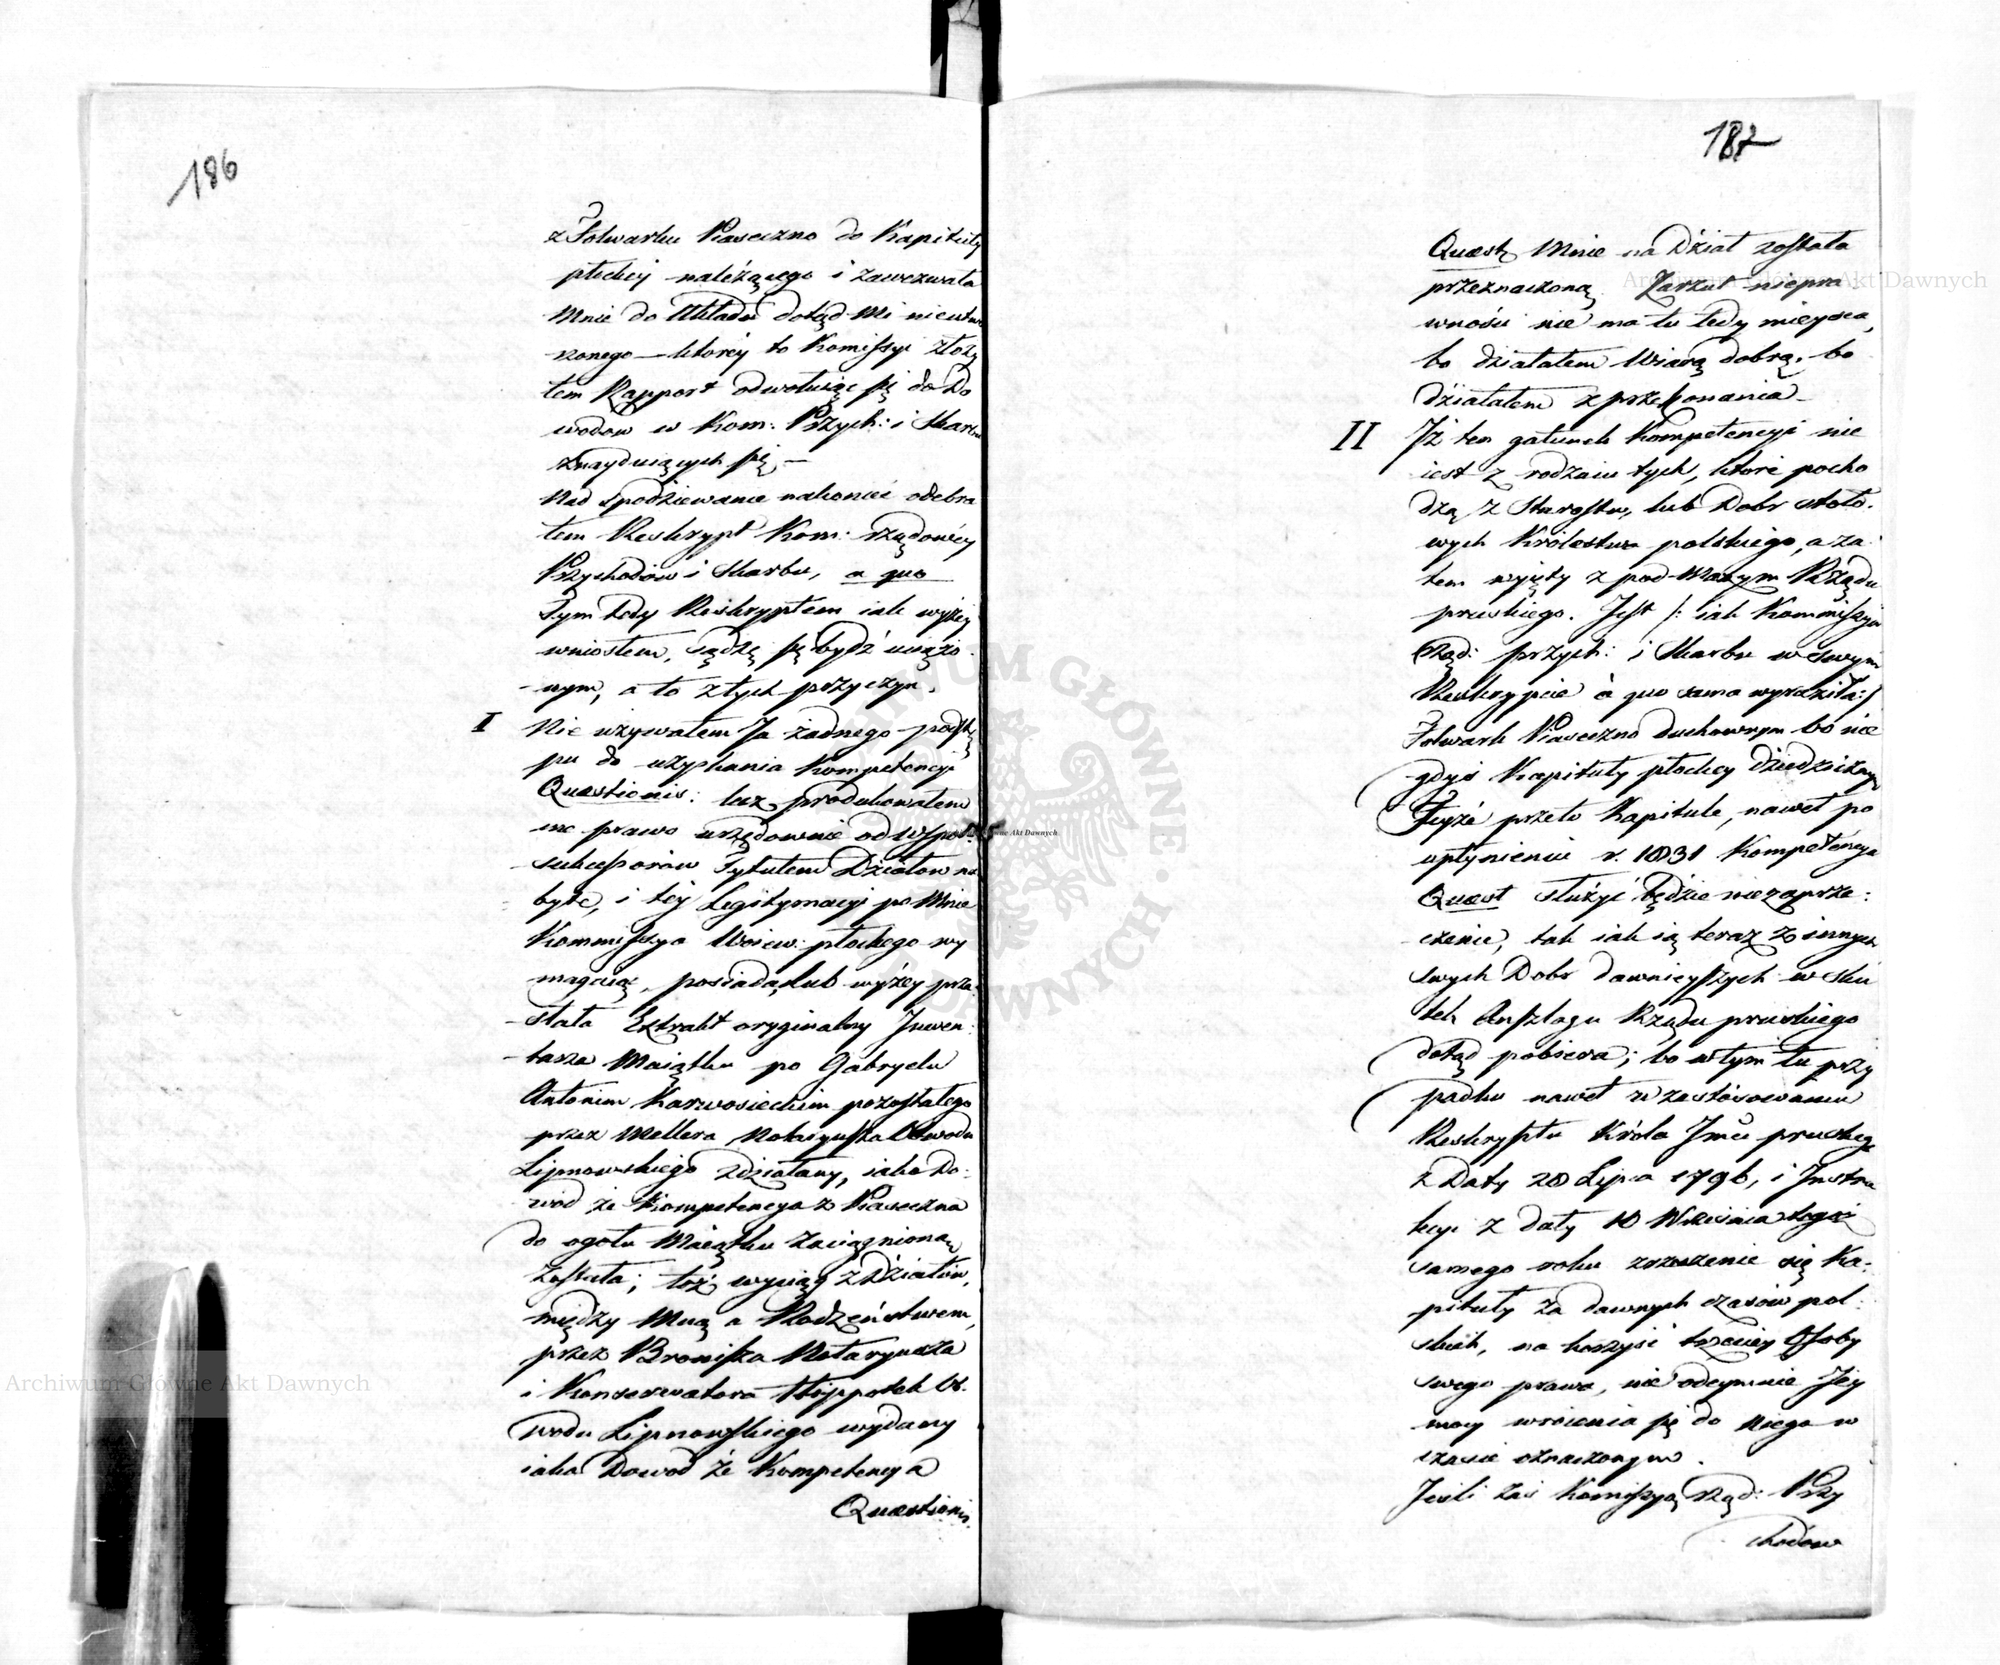 186
z Folwarku Piaseczno do Kapituły
płockiej należącego i zawezwała
Mnie do Układu dotąd Mi nieutwo
rzonego — ktorey to Komissyi złoży
łem Rapport odwołuiąc się do Do
wodow w Kom: Przych: i Skarbu
znayduiących się, —
Nad spodziewanie nakoniec odebra
łem Reskrypt Kom: rządowey
Przychodów i Skarbu, a quo
Tym tedy Reskryptem iak wyżey
wniosłem, sądzę się bydź uciążo
nym, a to z tych przyczyn.
I Nie używałem Ja żadnego podstę
pu do uzyskania Kompetencyi
Quæstionis: lecz produkowałem
me prawo urzędownie od Współ
sukcessorów Tytułem Działow na
byte, i tey Legitymacyi po Mnie
Kommissya Woiew: płockiego wy
magaiąc, posiada, lub wyżey prze
słała Extrakt oryginalny Inwen
tarza Maiątku po Gabryelu
Antonim Karwosieckim pozostałego
przez Mellera Notaryusza Obwodu
Lipnowskiego zdziałany, iako Do
wód że Kompetencya z Piaseczna
do ogołu Maiątku zaciągniona
została; toż wyciąg z Działów,
między Mną a Rodzeństwem,
przez Bronisza Notaryusza
i Konserwatora Hippotek Ob
wodu Lipnowskiego wydany
iako Dowod że Kompetencya
Quæstionis.
187
Quæst: Mnie na Dział została
przeznaczoną. Zarzut niepra
wności nie ma tu tedy mieysca,
bo działałem Wiarą dobrą, bo
działałem z przekonania —
II Iż ten gatunek Kompetencyi nie
iest z rodzaiu tych, które pocho
dzą z Starostw, lub Dobr stoło
wych Królestwa polskiego, a za
tem wyięty z pod Rządu
pruskiego. Jest /: iak Kommissya
Rząd: przych: i Skarbu w swym
Reskrypcie a quo sama wyraziła :/
Folwark Piaseczno duchownym bo nie
gdyś Kapituły płockiey dziedzicznym
Teyże przeto Kapitule, nawet po
upłynieniu r. 1831 Kompetencya
Quæst służyć będzie niezaprze
czenie, tak iak ią teraz z innych
swych Dobr dawnieyszych w sku
tek Anszlagu Rządu pruskiego
dotąd pobiera; bo w tym tu przy
padku nawet w zastósowaniu
Reskryptu Króla Jmci pruskiego
z Daty 28 Lipca 1796, i Instru
kcyi z daty 10 Września tegoż
samego roku zrzeczenie się Ka
pituły za dawnych czasów pol
skich, na korzyść trzeciey Osoby
swego prawa, nie odeymuie Jey
mocy wrócenia się do niego w
czasie oznaczonym.
Jeśli zaś Komissya Rząd: Przy
chodow
Archiwum Główne Akt Dawnych
Archiwum Główne Akt Dawnych